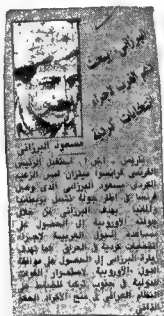 البرزاني يبحث
دعم الغرب لإجراء
انتخابات كردية
مسعود البرزاني
باريس - أ.ش.أ: استقبل الرئيس
الفرنسي فرانسوا ميتران أمس الزعيم
الكردي مسعود البرزاني الذي وصل
في إطار جولة تشمل بريطانيا
يهدف البرزاني من خلال
جولته الأوروبية إلى الحصول على
مساعدة الدول الغربية لإجراء
انتخابات كردية في العراق كما تهدف
زيارة البرزاني إلى الحصول على موافقة
الدول الأوروبية لاستمرار القوات
الدولية في جنوب تركيا
النظام العراقي من شن هجوم